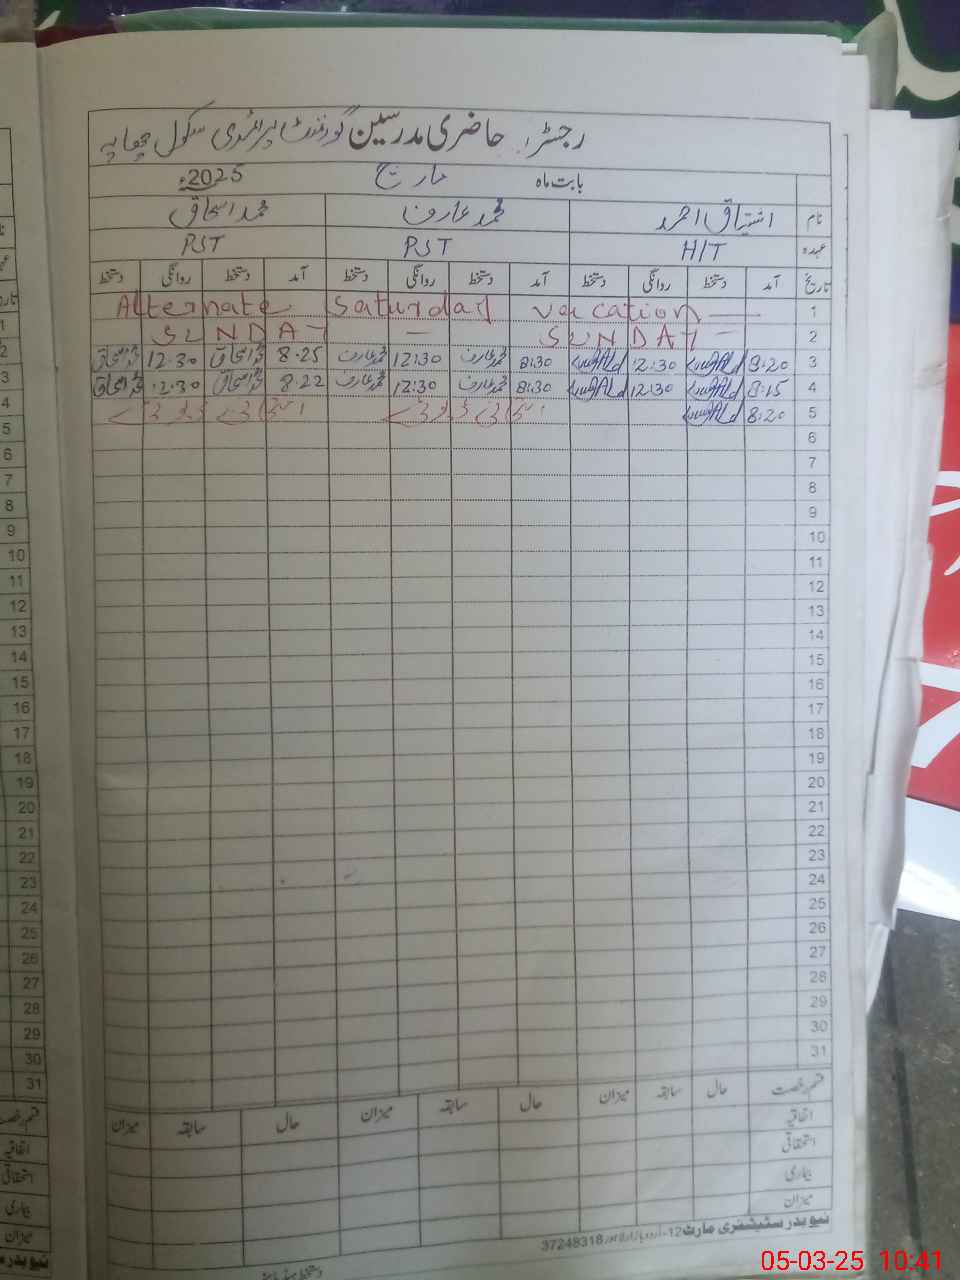 رجسٹر حاضری مدرسین گورنمنٹ پرائمری سکول چھاپہ
بابت ماہ مارچ 2025ء
نام اشتیاق احمد محمد عارف محمد اسحاق
عہدہ H/T PST PST
تاریخ آمد دستخط روانگی دستخط آمد دستخط روانگی دستخط آمد دستخط روانگی دستخط
1 Alternate Saturday vacation
2 SUNDAY SUNDAY
3 8:20 12:30 8:30 محمد عارف 12:30 محمد عارف 8.25 محمد اسحاق 12.30 محمد اسحاق
4 8:15 12:30 8:30 محمد عارف 12:30 محمد عارف 8.22 محمد اسحاق 12.30 محمد اسحاق
5 8:20
6
7
8
9
10
11
12
13
14
15
16
17
18
19
20
21
22
23
24
25
26
27
28
29
30
31
قسم رخصت حال سابقہ میزان حال سابقہ میزان حال سابقہ میزان
اتفاقیہ
استحقاقی
بیماری
میزان
نیو بدر سٹیشنری مارٹ 12-اردو بازار لاہور 37248318
05-03-25 10:41